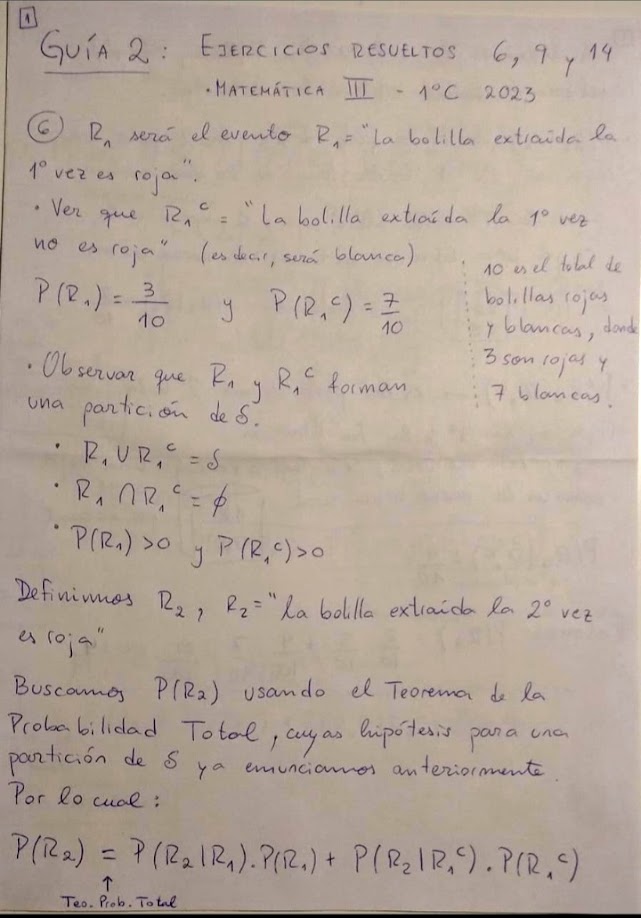 1
GUÍA 2: EJERCICIOS RESUELTOS 6, 9 y 14
• MATEMÁTICA III - 1°C 2023
⑥ R₁ será el evento R₁ = "La bolilla extraída la
1° vez es roja".
• Ver que R₁ᶜ = "La bolilla extraída la 1° vez
no es roja" (es decir, será blanca)
P(R₁) = 3/10 y P(R₁ᶜ) = 7/10
10 es el total de
bolillas rojas
y blancas, donde
3 son rojas y
7 blancas.
• Observar que R₁ y R₁ᶜ forman
una partición de S.
• R₁ ∪ R₁ᶜ = S
• R₁ ∩ R₁ᶜ = ϕ
• P(R₁) > 0 y P(R₁ᶜ) > 0
Definimos R₂, R₂ = "la bolilla extraída la 2° vez
es roja"
Buscamos P(R₂) usando el Teorema de la
Probabilidad Total, cuyas hipótesis para una
partición de S ya enunciamos anteriormente.
Por lo cual:
P(R₂) = P(R₂|R₁).P(R₁) + P(R₂|R₁ᶜ).P(R₁ᶜ)
↑
Teo. Prob. Total